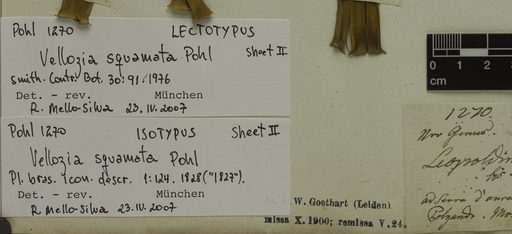 Pohl 1270 LECTOTYPUS
Vellozia squamata Pohl Sheet II
Smith. Contr. Bot. 30: 91. 1976
Det. - rev. München
R. Mello-Silva 23.IV.2007
Pohl 1270 ISOTYPUS Sheet II
Vellozia squamata Pohl
Pl. bras. icon. descr. 1: 124. 1828 ("1827").
Det. - rev. München
R. Mello-Silva 23.IV.2007
W. Goethart (Leiden)
missa X. 1900; remissa V. 24.
0 1 2
cm
1270
Nov Genus.